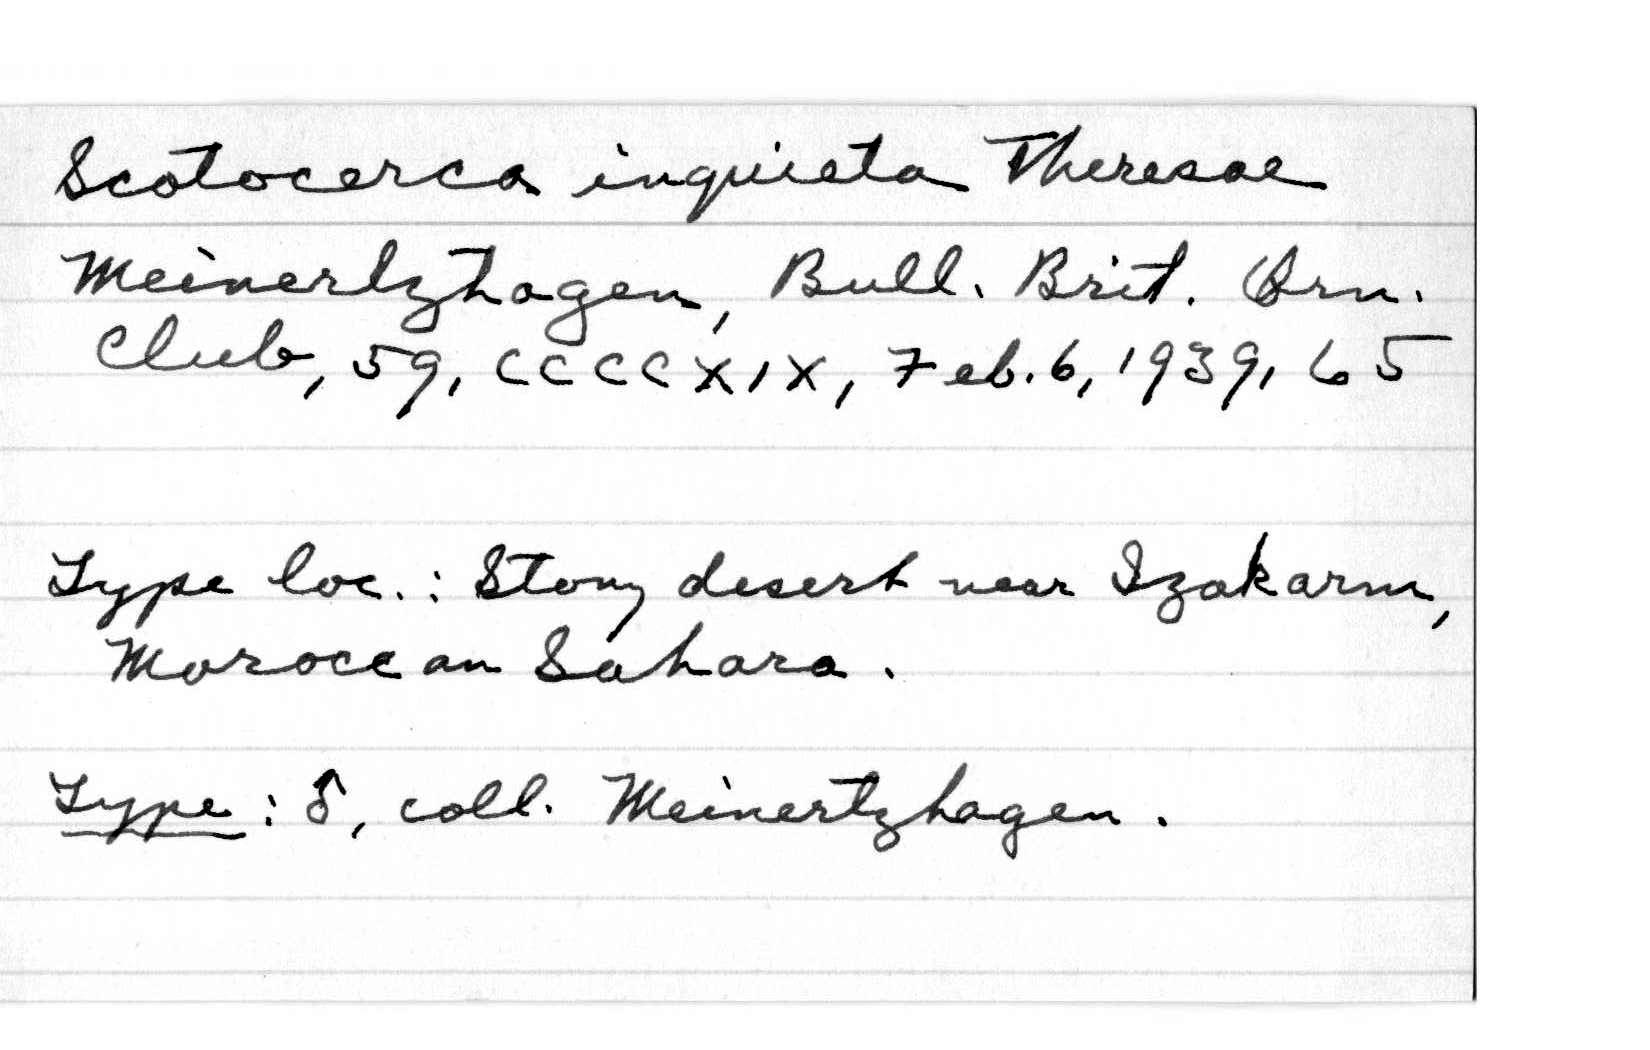 Scotocerca inquieta Theresae
Meinertzhagen, Bull. Brit. Orn.
Club, 59, CCCCXIX, Feb. 6, 1939, 65
Type loc. : Stony desert near Izakarm,
Moroccan Sahara.
Type : ♂, coll. Meinertzhagen.